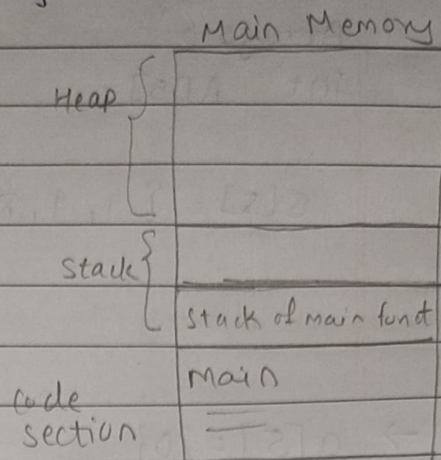 Main Memory
Heap
Stack
Stack of main funct
Main
Code
section